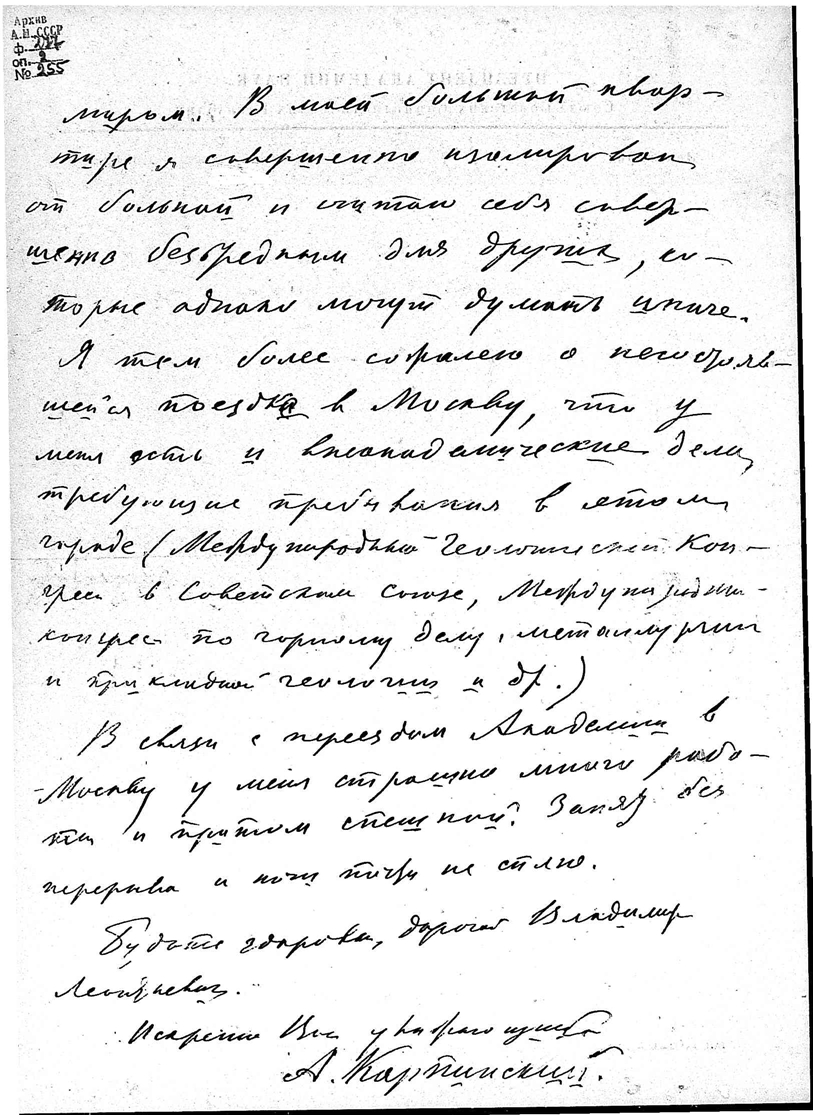 Архив
А.Н. СССР
ф.
оп. 2
№ 255
миром. В моей большой квар-
тире я совершенно изолирован
от больной и считаю себя совер-
шенно безвредным для других, ко-
торые однако могут думать иначе.
Я тем более сожалею о несостояв-
шейся поездке в Москву, что у
меня есть и внеакадемические дела,
требующие пребывания в этом
городе (Международный Геологический Кон-
гресс в Советском союзе, Международный
конгресс по горному делу, металлургии
и прикладной геологии и др.)
В связи с переездом Академии в
Москву у меня страшно много рабо-
ты и притом спешной. Занят без
перерыва и ночи почти не сплю.
Будьте здоровы, дорогой Владимир
Леонтьевич.
Искренно Вас уважающий
А. Карпинский.